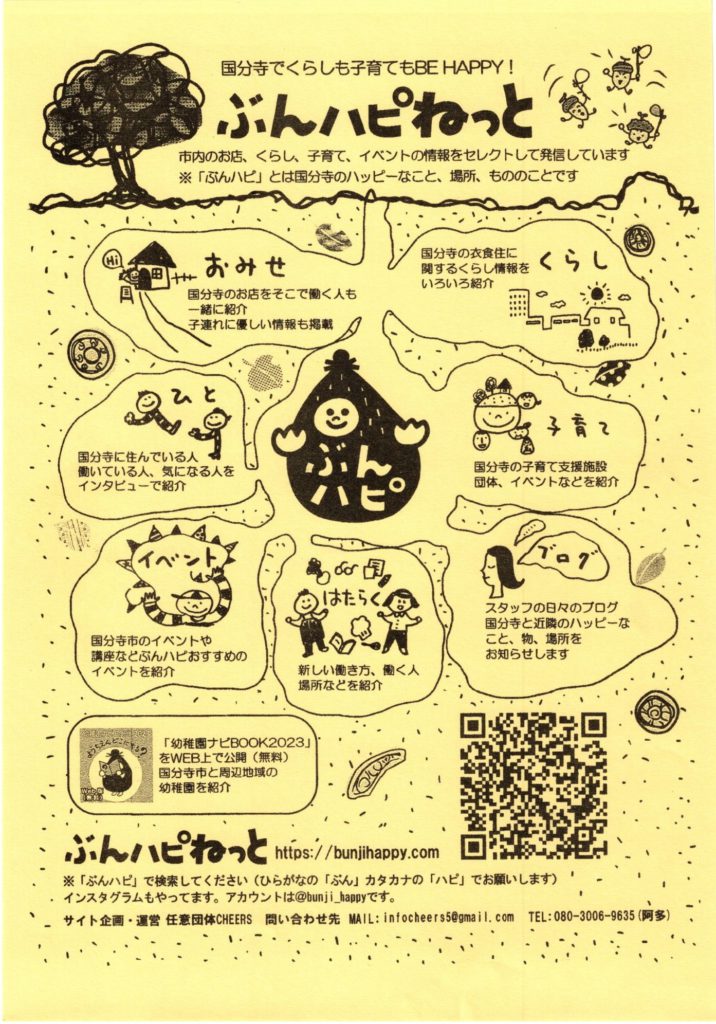 国分寺でくらしも子育てもBE HAPPY！
ぶんハピねっと
市内のお店、くらし、子育て、イベントの情報をセレクトして発信しています
※「ぶんハピ」とは国分寺のハッピーなこと、場所、もののことです
Hi
おみせ
国分寺のお店をそこで働く人も
一緒に紹介
子連れに優しい情報も掲載
国分寺の衣食住に
関するくらし情報を
いろいろ紹介
くらし
ひと
国分寺に住んでいる人
働いている人、気になる人を
インタビューで紹介
ぶん
ハピ
子育て
国分寺の子育て支援施設
団体、イベントなどを紹介
イベント
国分寺市のイベントや
講座などぶんハピおすすめの
イベントを紹介
はたらく
新しい働き方、働く人
場所などを紹介
ブログ
スタッフの日々のブログ
国分寺と近隣のハッピーな
こと、物、場所を
お知らせします
「幼稚園ナビBOOK2023」
をWEB上で公開（無料）
国分寺市と周辺地域の
幼稚園を紹介
ぶんハピねっと https://bunjihappy.com
※「ぶんハピ」で検索してください（ひらがなの「ぶん」カタカナの「ハピ」でお願いします）
インスタグラムもやってます。アカウントは@bunji_happyです。
サイト企画・運営 任意団体CHEERS 問い合わせ先 MAIL: infocheers5@gmail.com TEL:080-3006-9635(阿多)